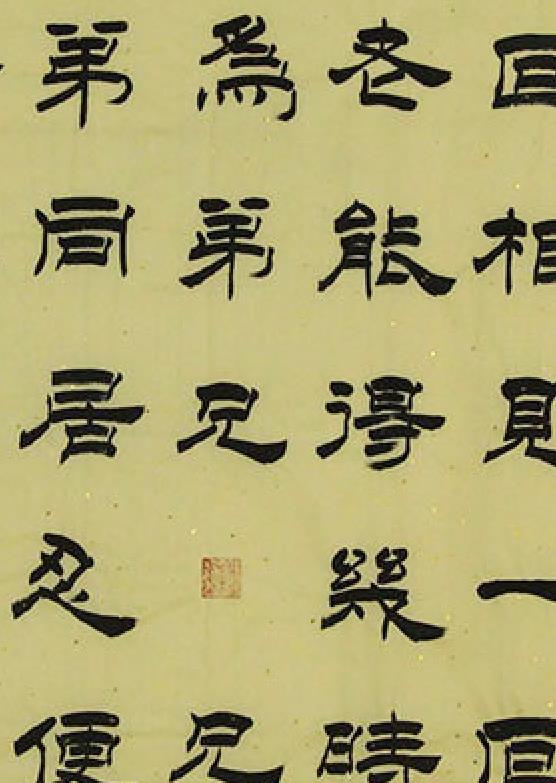 回相見一回
老能得幾時
爲弟兄兄
弟同居忍便